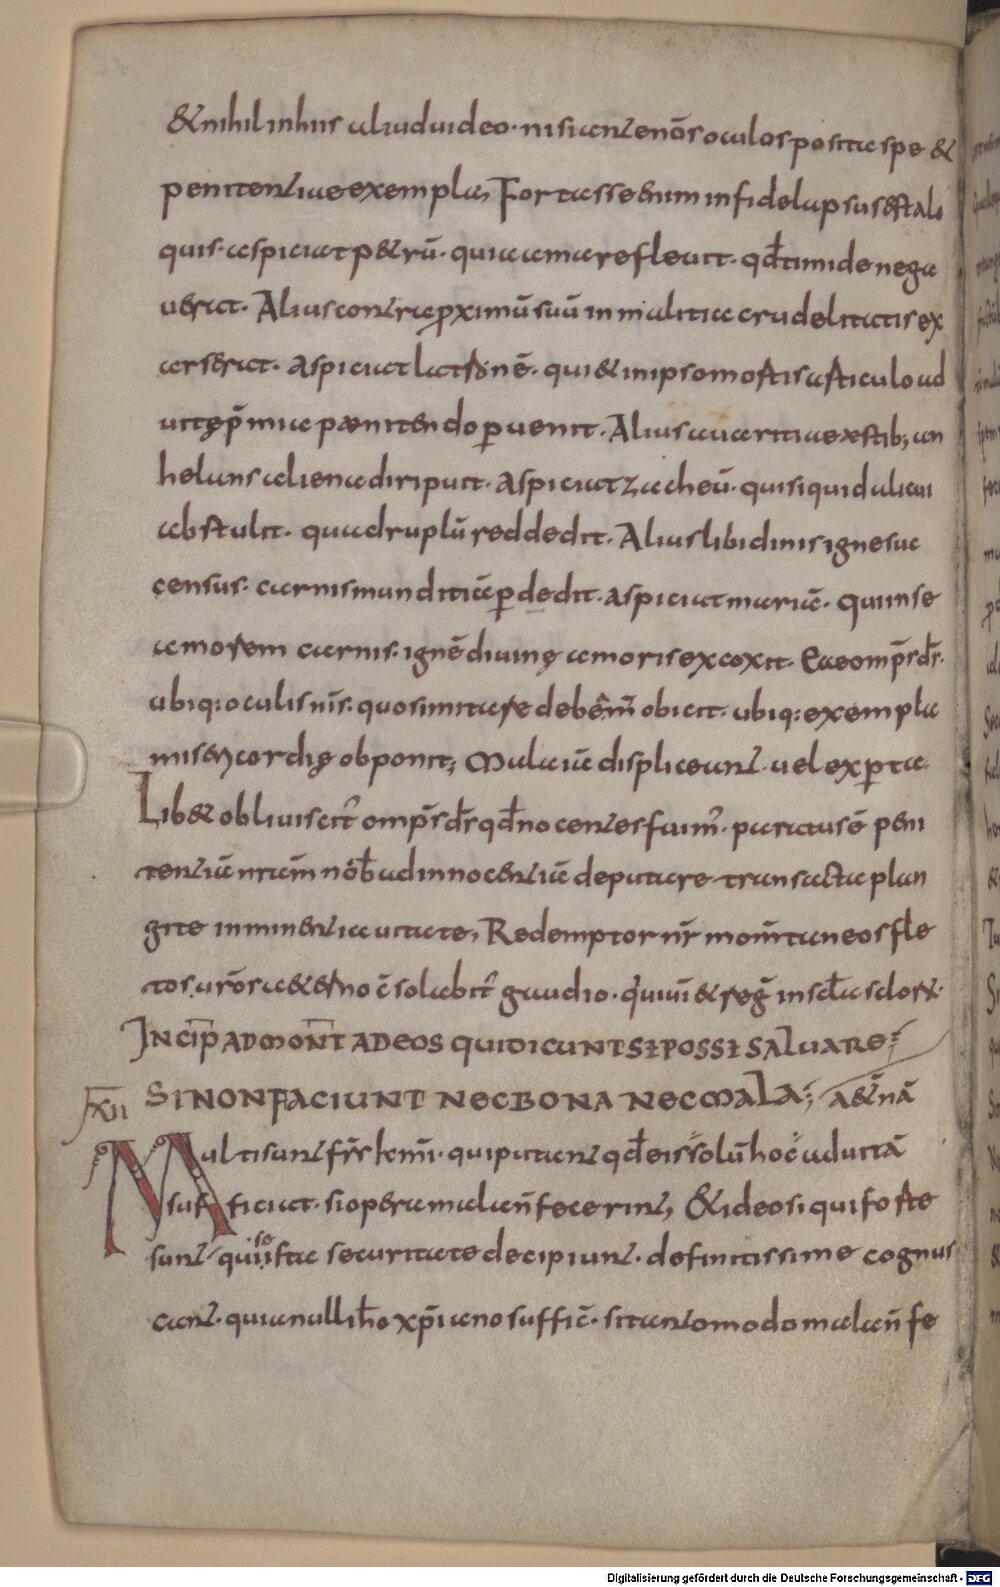 & nihil in his aliud uideo · nisi ante nōs oculos posita spe &
penitentiae exempla, Fortasse enim in fide lapsus est ali
quis · aspiciat p&rū · quia amare fleuit · qd̄ timide nega
uerat · Alius contra ꝓximū suū in malitia crudelitatis ex
arserat · aspiciat latronē · qui & in ipso mortis articulo ad
uitę p̄mia pænitendo ꝑuenit · Alius auaritiae aestib; an
helans aliena diripuit · aspiciat zacheū · qui si quid alicui
abstulit · quadruplū reddedit · Alius libidinis igne suc
census · carnis munditiā ꝑdedit · aspiciat mariā · qui in se
amorem carnis · ignē diuinę amoris excoxit · Ecce omp̄s ds̄ ·
ubiq: oculis nr̄is · quos imitare debem̄ obicit · ubiq: exempla
misericordię obponit; Mala iā displiceant · uel experta
Lib& obliuiscit' omp̄s ds̄ qd̄ nocentes fuim' · paratus ē peni
tentiā nr̄am nob̄ ad innocentiā deputare transacta plan
gite inminentia uitate, Redemptor nr̄ momentaneos fle
tos uros a&erno cōsolabit' gaudio · qui uiu& & regn̄ in scl̄a sclorū ·
INCIP̄ ADMONT̄ AD EOS QUI DICUNT SI POSSI SALUARE
SI NON FACIUNT NEC BONA NEC MALA; AETERNA
XII
Multi sunt frs̄ km̄i · qui putant qd̄ eis solū hoc ad uitā
sufficiat · si opera mala n̄ fecerint, & ideo si qui forte
sunt qui ista securitate se decipiunt · definitissime cognus
cant · quia nulli hō xp̄iano suffic̄ · si tantomodo mala n̄ fe
Digitalisierung gefördert durch die Deutsche Forschungsgemeinschaft - DFG